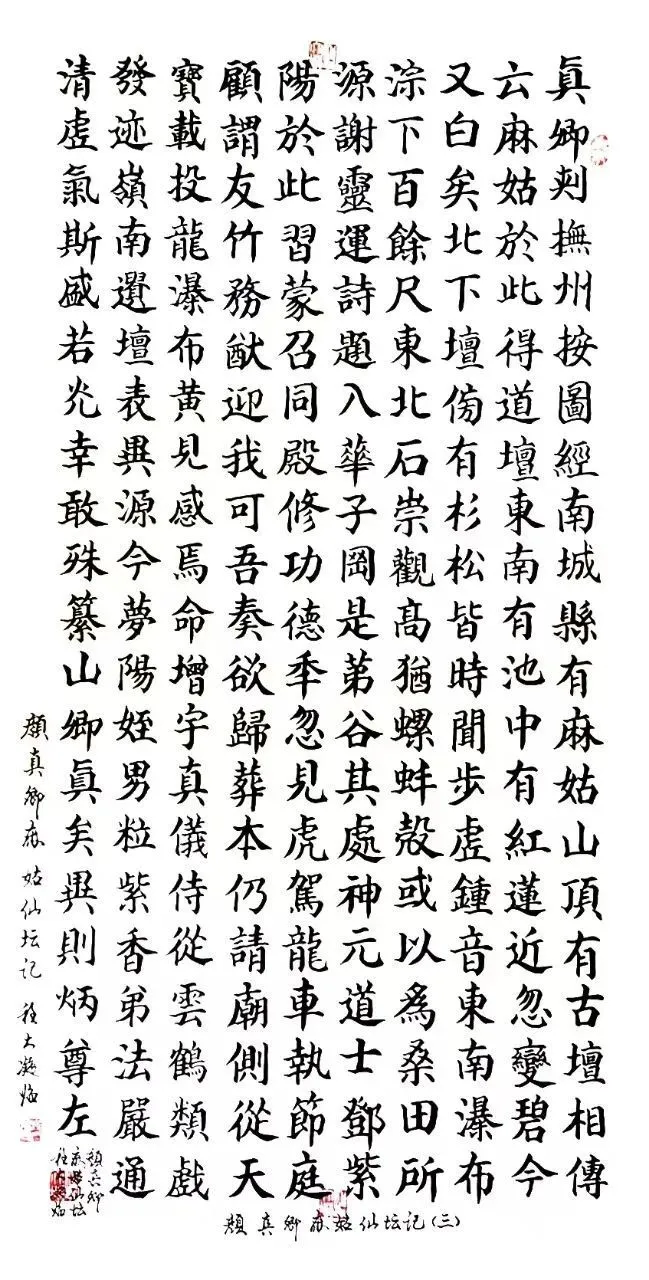 眞卿刾撫州按圖經南城縣有麻姑山頂有古壇相傳
云麻姑於此得道壇東南有池中有紅蓮近忽變碧今
又白矣北下壇傍有杉松皆時聞步虛鍾音東南瀑布
淙下百餘尺東北石崇觀高猶螺蚌殻或以為桑田所
源謝靈運詩題入華子岡是苐谷其處神元道士鄧紫
陽於此習蒙召同殿修功德季忽見虎駕龍車執節庭
顧謂友竹務猷迎我可吾奏欲歸葬本仍請廟側從天
寶載投龍瀑布黄見感焉命增宇真儀侍從雲鶴類戲
發迹嶺南選壇表異源今夢陽姪男粒紫香弟法嚴通
清虛氣斯盛若幸敢殊纂山卿眞矣異則炳尊左
颜真卿麻姑仙坛记 大凝临
颜真卿
麻姑仙坛
颜真卿麻姑仙坛记(三)